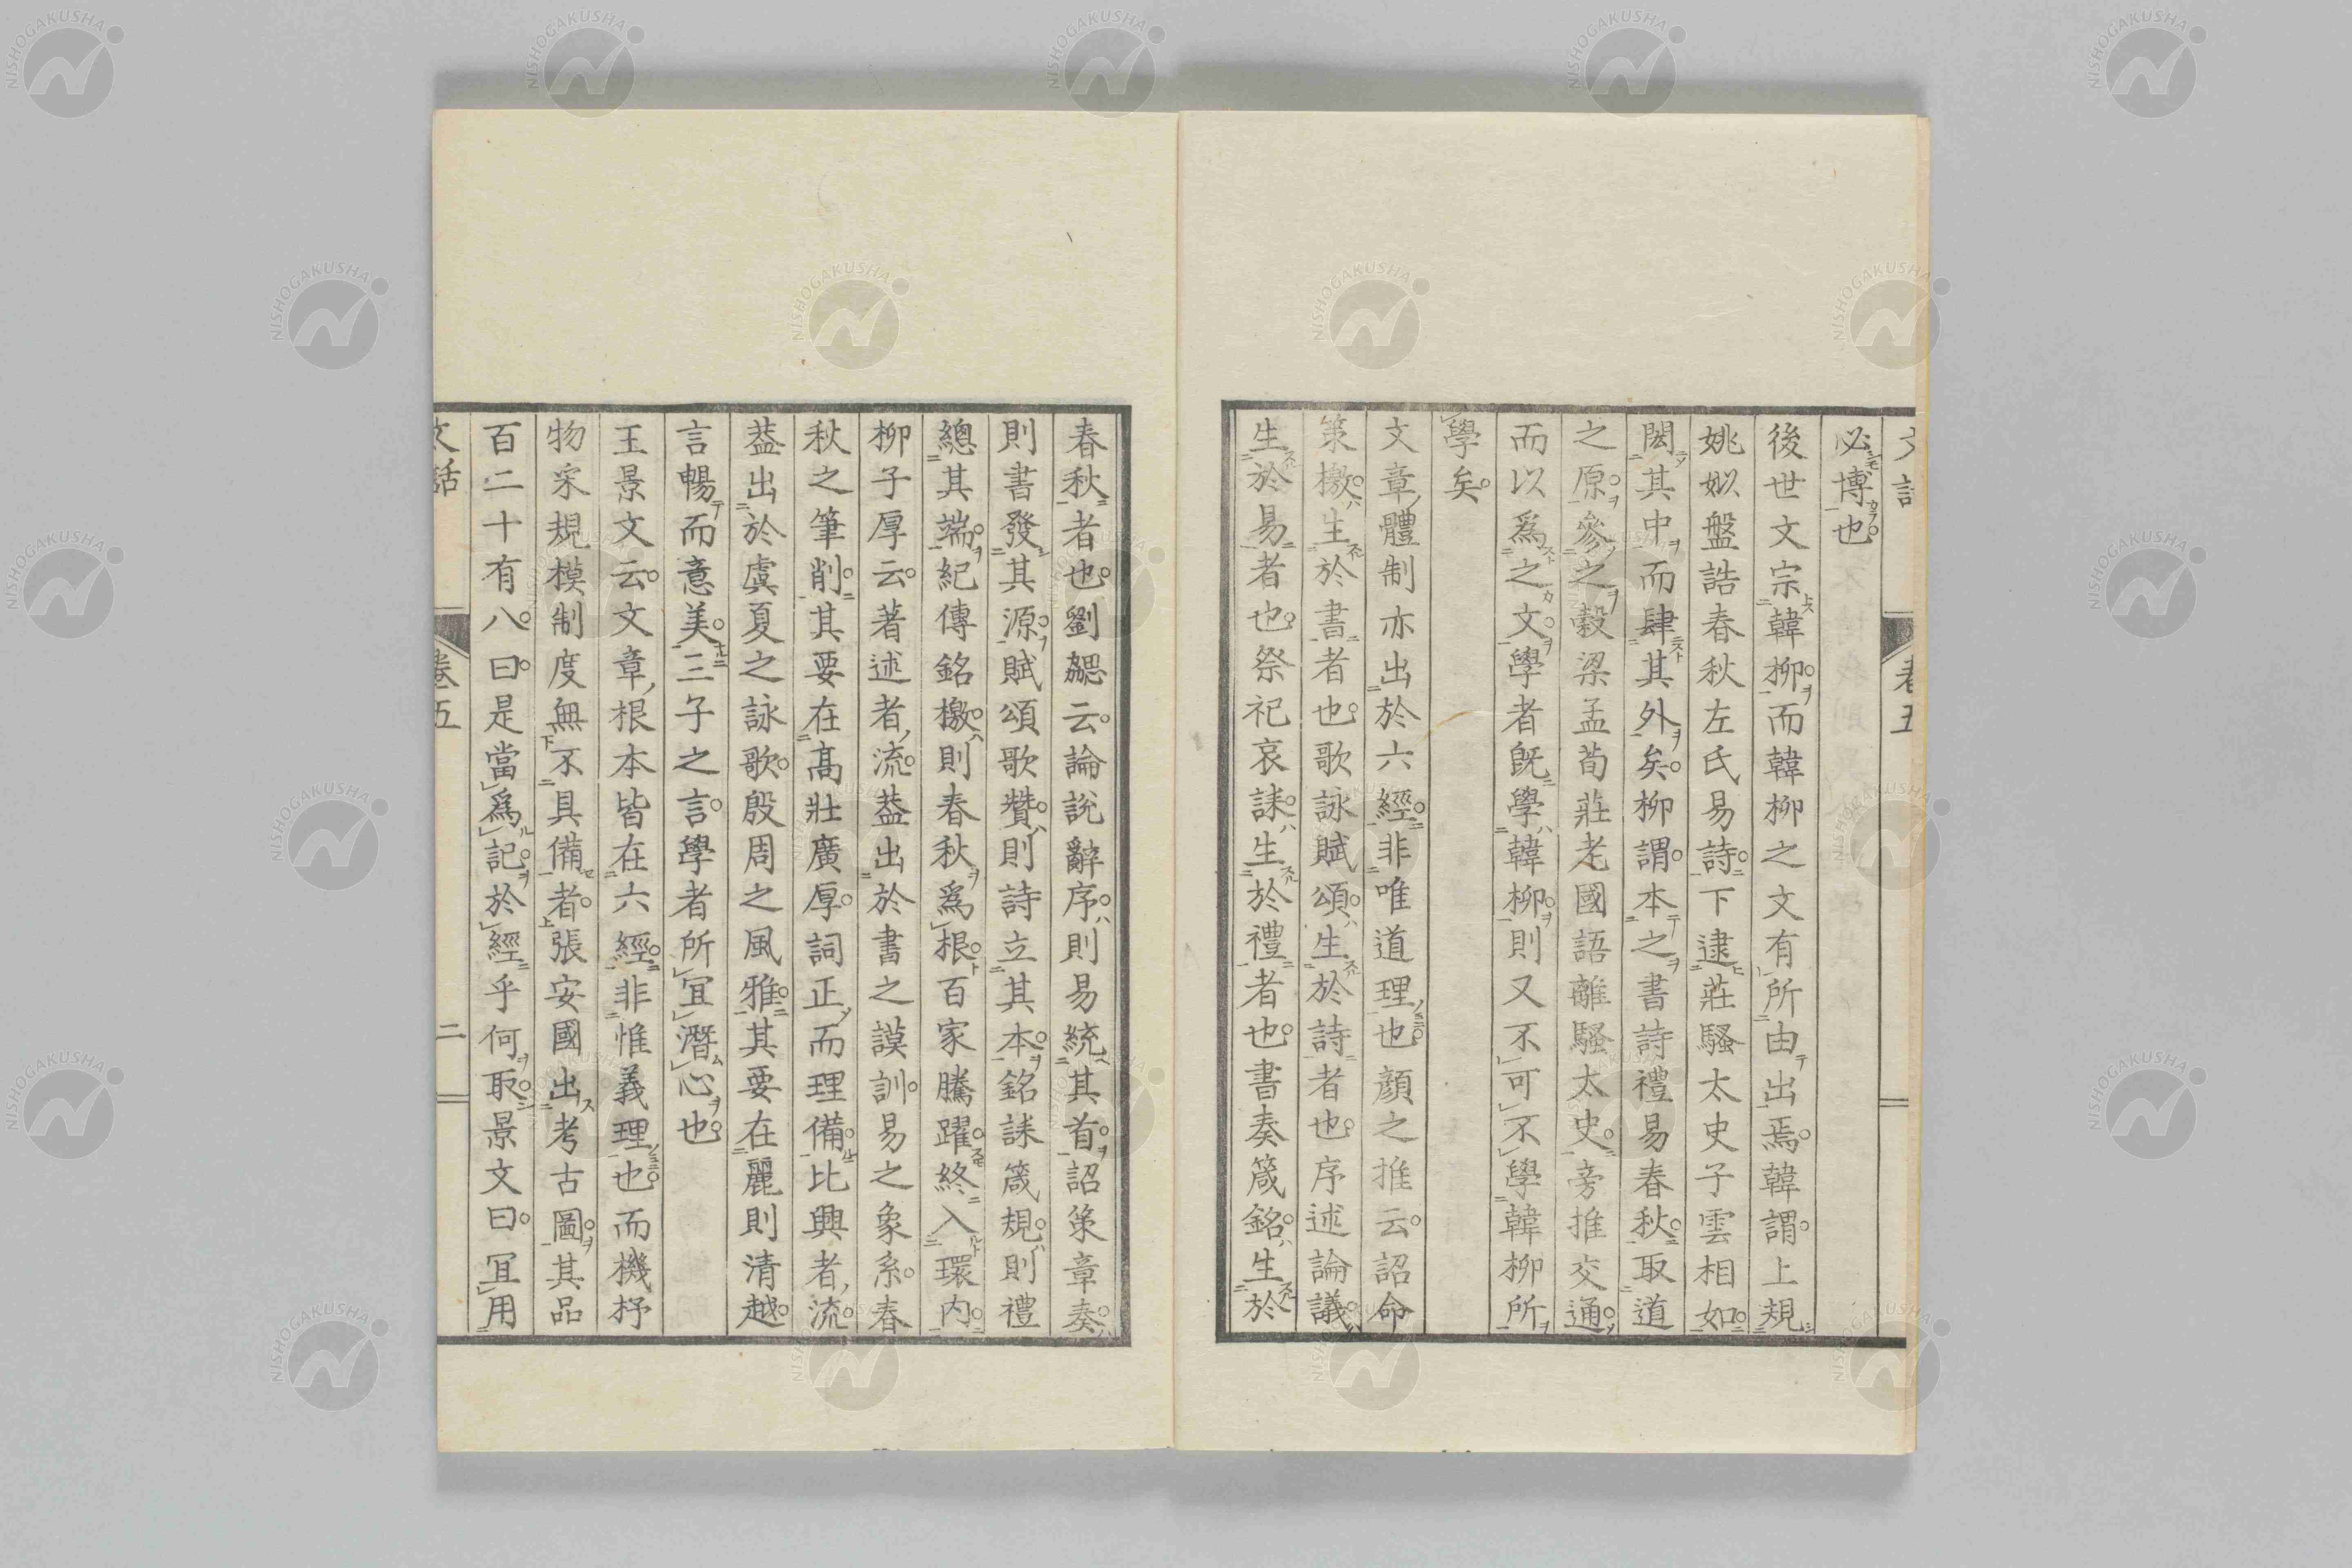 文話 卷五
必博也
後世文宗韓柳而韓柳之文有所由出焉韓謂上規
姚姒盤誥春秋左氏易詩下逮莊騷太史子雲相如
閎其中而肆其外矣柳謂本之書詩禮易春秋取道
之原參之穀梁孟荀莊老國語離騷太史旁推交通
而以爲之文學者既學韓柳則又不可不學韓柳所
學矣
文章體制亦出於六經非唯道理也顏之推云詔命
策檄生於書者也歌詠賦頌生於詩者也序述論議
生於易者也祭祀哀誄生於禮者也書奏箴銘生於
春秋者也劉勰云論説辭序則易統其首詔策章奏
則書發其源賦頌歌贊則詩立其本銘誄箴規則禮
總其端紀傳銘檄則春秋爲根百家騰躍終入環内
柳子厚云著述者流葢出於書之謨訓易之象系春
秋之筆削其要在高壯廣厚詞正而理備比興者流
葢出於虞夏之詠歌殷周之風雅其要在麗則清越
言暢而意美三子之言學者所宜潛心也
王景文云文章根本皆在六經非惟義理也而機杼
物采規模制度無不具備者張安國出考古圖其品
百二十有八曰是當爲記於經乎何取景文曰宜用
文話 卷五 二
NISHOGAKUSHA